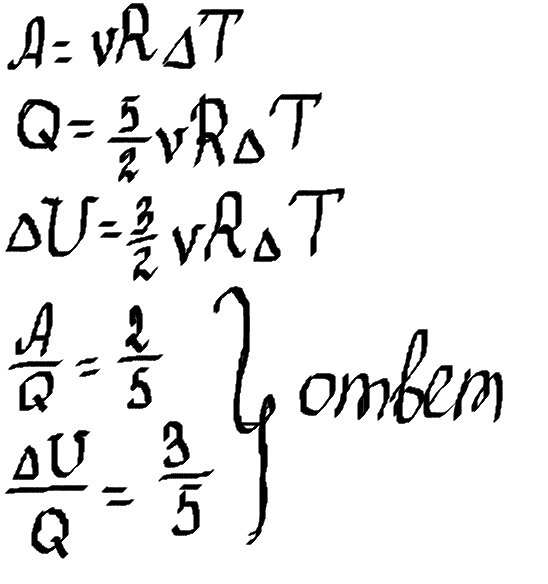 A = νRΔT
Q = 5/2 νRΔT
ΔU = 3/2 νRΔT
A/Q = 2/5
ΔU/Q = 3/5
} ответ